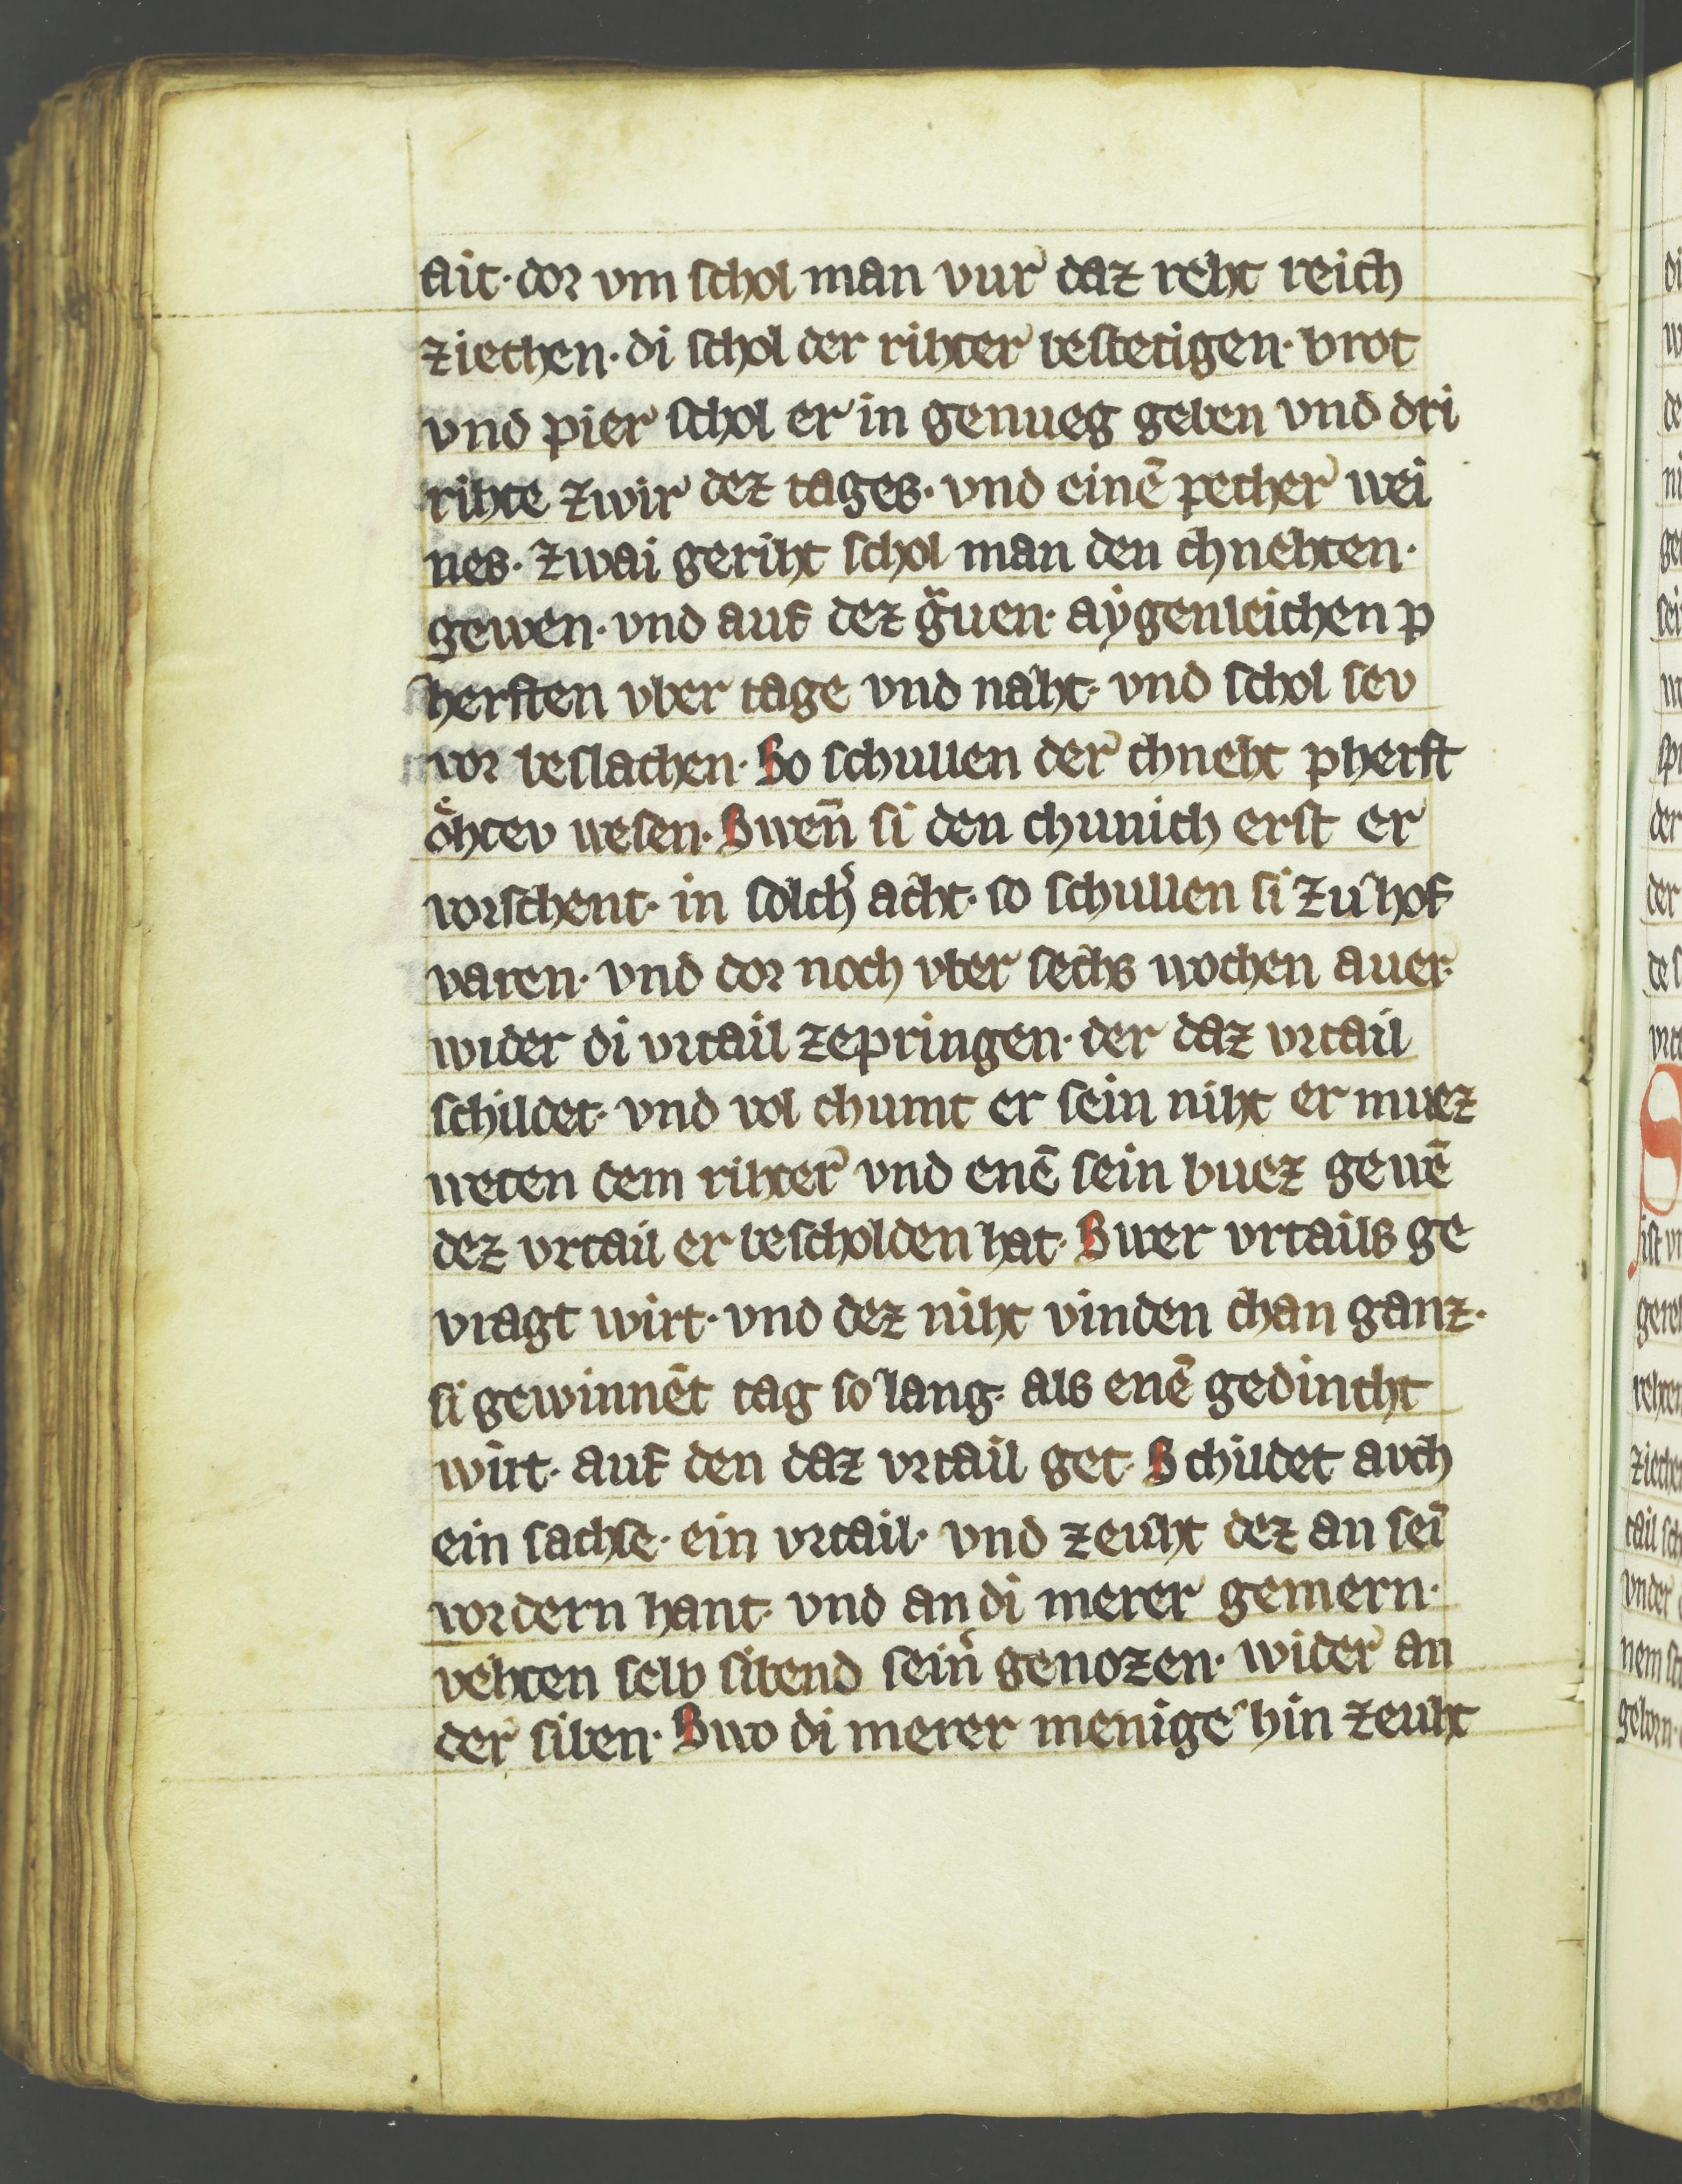 ait· dor vm schol man vur daz reht reich
ziechen· di schol der rihter bestetigen· brot
vnd pier schol er in genueg geben vnd dri
rihte zwir dez tages· vnd einē pecher wei
nes· zwai geriht schol man den chnehten·
gewen· vnd auf dez gruen· aygenleichen p
hersten vber tage vnd naht· vnd schol sev
vor beslachen· So schullen der chneht pherft
öhtev wesen· Swen̄ si den chunich erst er
vorschent· in solch acht· so schullen si zu hof
varen· vnd dor noch vber sechs wochen auer·
wider di vrtail zepringen· der daz vrtail
schildet· vnd vol chumt er sein niht er muez
weten dem rihter vnd enē sein buez geuē
dez vrtail er bescholden hat· Swer vrtails ge
vragt wirt· vnd dez niht vinden chan ganz·
si gewinnēt tag so lang· als enē gedincht
wirt· auf den daz vrtail get· Schildet avch
ein sachse· ein vrtail· vnd zeuht dez an sei
vordern hant· vnd an di merer gemern·
vehten selb sibend sein genozen· wider an
der siben· Swo di merer menige hin zeuht